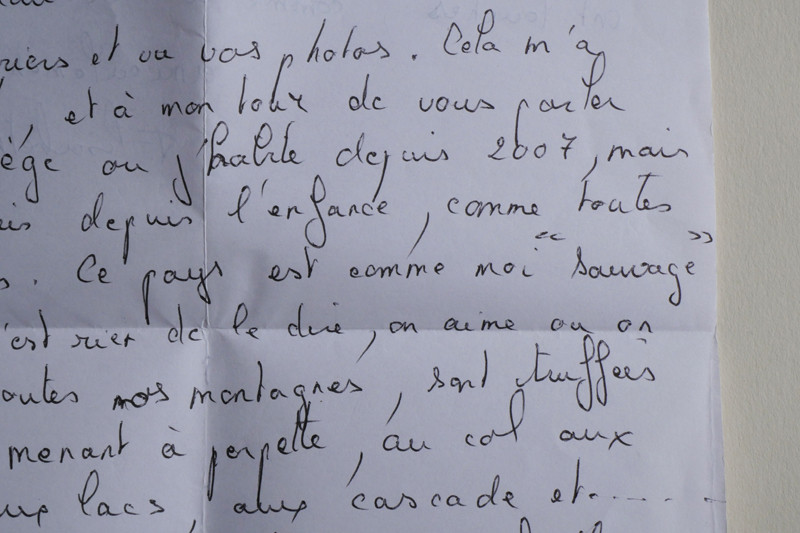 et ou vos photos. Cela m'a
, et à mon tour de vous parler
ège ou j'habite depuis 2007, mais
is depuis l'enfance, comme toutes
s. Ce pays est comme moi "sauvage"
'est rien de le dire, on aime ou on
outes nos montagnes, sont truffées
menant à perpette, au col aux
ux lacs, aux cascade et......